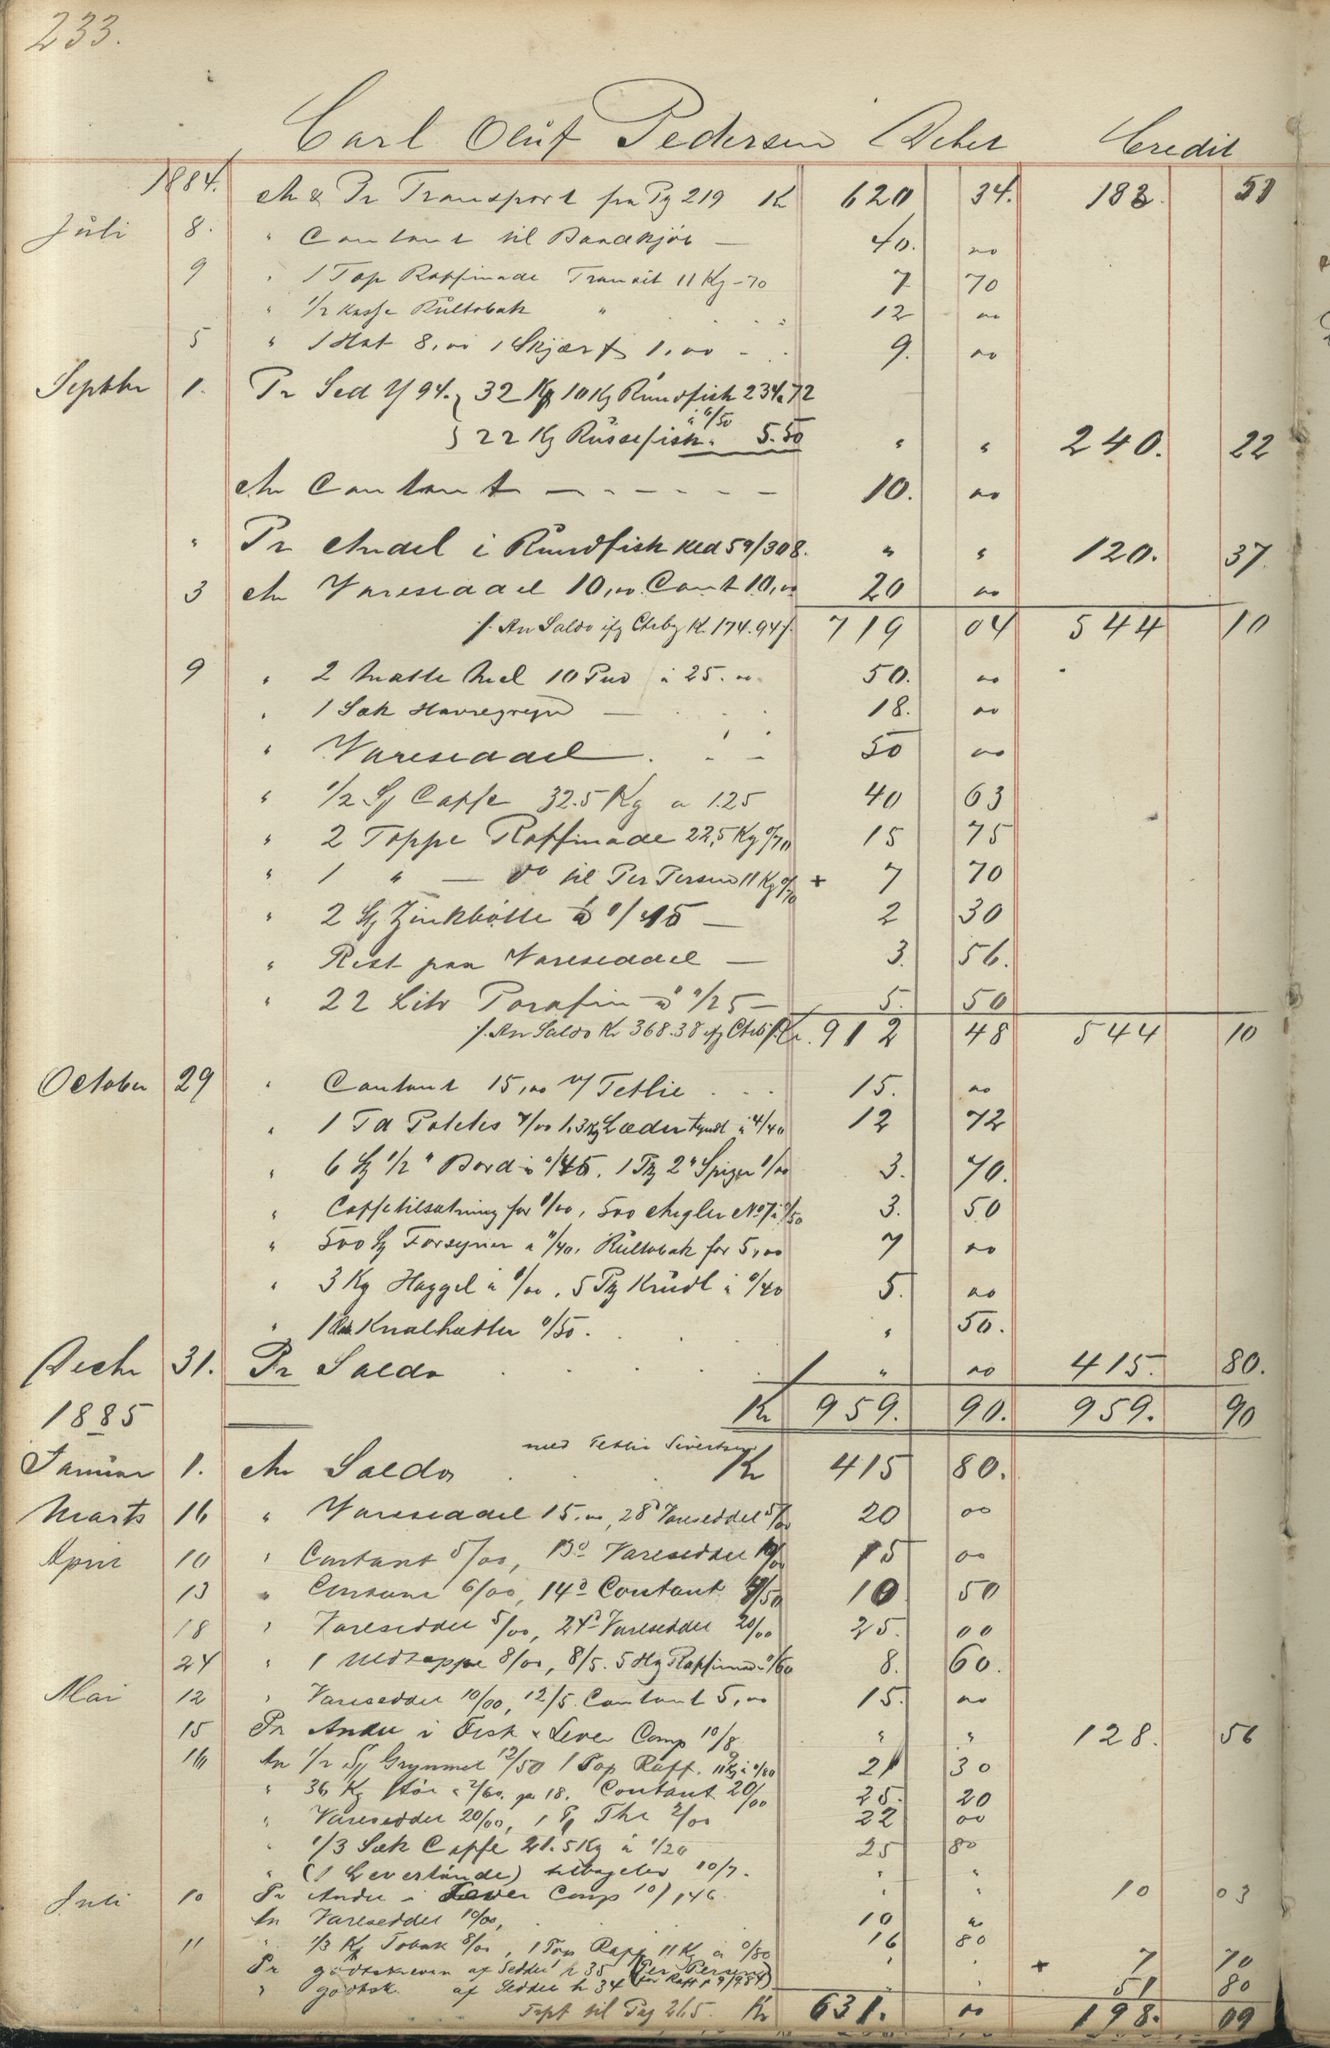 233.
Carl Oluf Pedersen Debet Credit
1884. An & Pr Transport fra Pg 219 Kr 620 34. 183. 51
Juli 8. " Contant til Baadkjöb — 40. 00
9 " 1 Top Raffinade Transit 11 Kg - 70 7 70
" 1/2 Kasse Rultobak " 12 00
5 " 1 Hat 8,00 1 Skjærf 1,00 - 9. 00
Septbr 1. Pr Sed 4/94. } 32 Kg 10 Kg Rundfisk 234.72
} 22 Kg Russefisk. à 6/50 5.50 " " 240. 22
An Contant - - - - - - 10. 00
" Pr Andel i Rundfisk Red 59/308. " " 120. 37
3 An Vareseddel 10,00. Cont 10,00 20 00
/. An Saldo ifg Ctrbg K. 174.94 /. 719 04 544 10
9 " 2 Matte Mel 10 Pud à 25.00. 50. 00
" 1 Sæk Havregryn — 18. 00
" Vareseddel 50 00
" 1/2 Sk Caffe 32.5 Kg a 1.25 40 63
" 2 Toppe Raffinade 22,5 Kg 0/70 15 75
" 1 " — do til Per Persen 11 Kg 0/70 + 7 70
" 2 Stk Zinkbötte à 1/15 — 2 30
" Rest paa Vareseddel — 3. 56.
" 22 Litr Parafin à 0/25 — 5. 50
/. An Saldo Kr 368.38 ifg Ctrbg /. Kr. 912 48 544 10
October 29 " Contant 15,00 v/ Tetlie 15. 00
" 1 Td Potetes 7/00 1,3 Kg Læder tyndt à 4/40 12 72
" 6 Stk 1/2 " Bord à 0/45. 1 Pk 2" Spiger 1/00 3. 70.
" Caffetilsætning for 1/00, 500 Angler No 7 à 0/50 3. 50
" 500 Stk Forsyner à 0/40, Rultobak for 5,00 7 00
" 3 Kg Haggel à 1/00, 5 Pk Krudt à 0/40 5. 00
" 1 Knalhætter 0/50. " 50.
Decbr 31. Pr Saldo " 00 415. 80.
1885 Kr 959. 90. 959. 90
Januar 1. An Saldo med Tetlie Sivertsen Kr 415 80.
Marts 16 " Vareseddel 15.00, 28d Vareseddel 5/00 20 00
April 10 " Contant 5/00, 13d Vareseddel 10/00 15 00
13 " Contant 6/00, 14d Contant 4/50 10 50
18 " Vareseddel 5/00, 24d Vareseddel 20/00 25. 00
24 " 1 Uldteppe 8/00, 8/5. 5 Hg Raffinad 0/60 8. 60.
Mai 12 " Vareseddel 10/00, 12/5. Contant 5,00 15. 00
15 Pr Andel i Fisk & Lever Comp 10/8 " " 128. 56
16 An 1/2 Sk Grynmel 12/50 1 Top Raff. 11 Kg à 0/80 21 30
" 36 Kg Stör à 2/60. pr 18. Contant 20/00 25. 20
" Vareseddel 20/00, 1 Pk The 2/00 22 00
" 1/3 Sæk Caffe 21.5 Kg à 1/20 25 80
" (1 Levertönde) tilbagelev 10/7. " "
Juli 10 Pr Andel i Lever Comp 10/146 " " 10 03
An Vareseddel 10/00, 10 00
11 " 1/3 Kg Tobak 8/00, 1 Top Raff 11 Kg à 0/80 16 80
Pr godtskreven af Seddel N 35 (Per Persen) " " + 7 70
" godtsk. af Seddel N 34 (for Raff pr 9/9 84) " " 51 80
Tspt til Pag 265. Kr 631. 00 198. 09